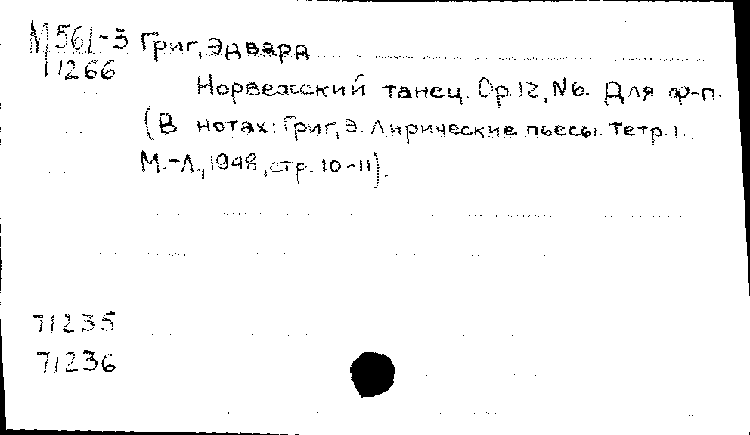 М561-3 Григ, Эдвард
1266
Норвежский танец. Op.12, N6. Для ф-п.
(В нотах: Григ, Э. Лирические пьесы. Тетр.1.
М.-Л., 1948, стр. 10-11).
71235
71236